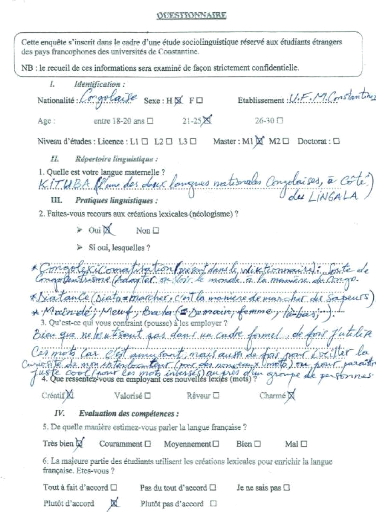 QUESTIONNAIRE
Cette enquête s'inscrit dans le cadre d'une étude sociolinguistique réservé aux étudiants étrangers
des pays francophones des universités de Constantine.
NB : le recueil de ces informations sera examiné de façon strictement confidentielle.
I. Identification :
Nationalité : Congolaise Sexe : H ☒ F ☐ Etablissement : U.F.M Constantine
Age : entre 18-20 ans ☐ 21-25 ☒ 26-30 ☐
Niveau d'études : Licence : L1 ☐ L2 ☐ L3 ☐ Master : M1 ☒ M2 ☐ Doctorat : ☐
II. Répertoire linguistique :
1. Quelle est votre langue maternelle ?
KITUBA (l'une des deux langues nationales Congolaises, à côté
du LINGALA)
III. Pratiques linguistiques :
2. Faites-vous recours aux créations lexicales (néologisme) ?
➢ Oui ☒ Non ☐
➢ Si oui, lesquelles ?
dans le dictionnaire) :
le monde à la manière du Congo.
(Diata = marcher, c'est la manière de marcher des sapeurs)
Meuf, femme,
3. Qu'est-ce qui vous contraint (pousse) à les employer ?
Bien que ne utilisant pas dans un cadre formel, de fois j'utilise
Ces mots car c'est amusant, mais aussi de fois pour
curiosité de mon interlocuteur ou pour paraître
juste cool auprès d'un groupe de personnes
4. Que ressentez-vous en employant ces nouvelles lexies (mots) ?
Créatif ☒ Valorisé ☐ Rêveur ☐ Charmé ☒
IV. Evaluation des compétences :
5. De quelle manière estimez-vous parler la langue française ?
Très bien ☒ Couramment ☐ Moyennement ☐ Bien ☐ Mal ☐
6. La majeure partie des étudiants utilisent les créations lexicales pour enrichir la langue
française. Etes-vous ?
Tout à fait d'accord ☐ Pas du tout d'accord ☐ Je ne sais pas ☐
Plutôt d'accord ☒ Plutôt pas d'accord ☐